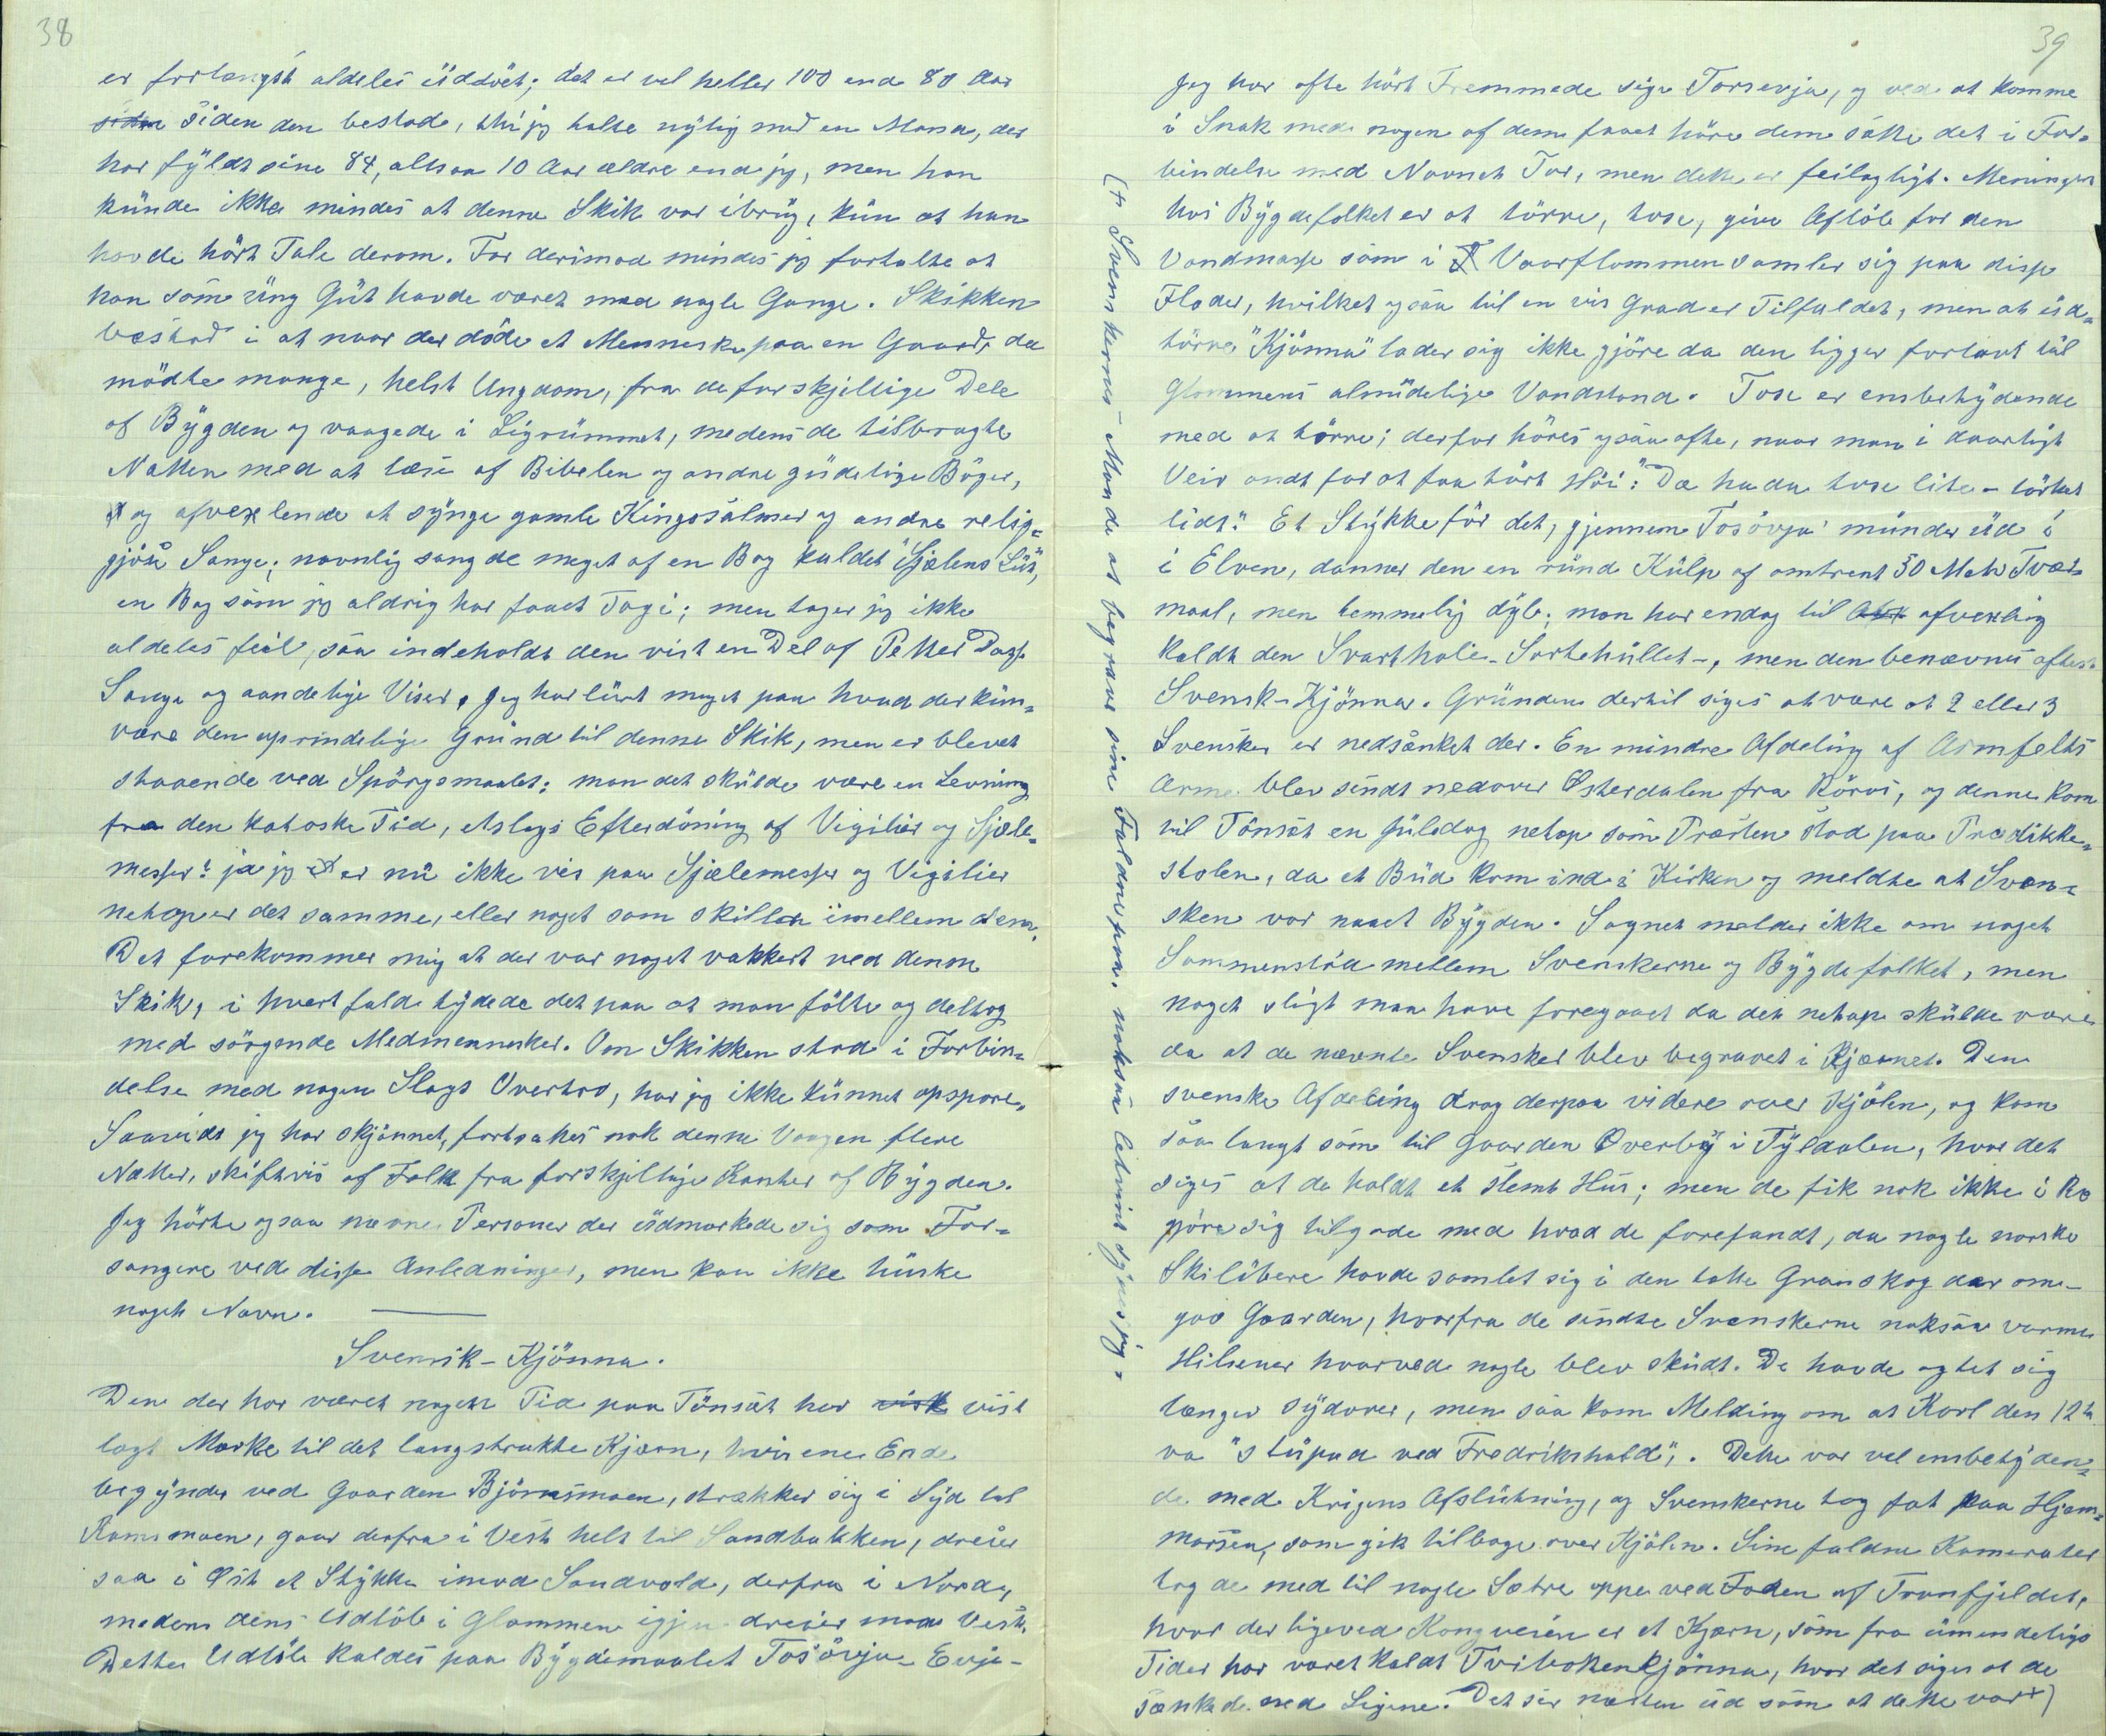 38
er forlængst aldeles uddöet; det er vel heller 100 end 80 Aar
siden siden den bestod, thi jeg talte nylig med en Mann, der
har fyldt sine 84, altsaa 10 Aar ældre end jeg, men han
kunde ikke mindes at denne Skik var ibrug, kun at han
havde hört Tale derom. Far derimod mindes jeg fortalte at
han som ung Gut havde været med nogle Gange. Skikken
bestod i at naar der döde et Menneske paa en Gaard, da
mödte mange, helst Ungdom, fra de forskjellige Dele
af Bygden og vaagede i Ligrummet, medens de tilbragte
Natten med at læse af Bibelen og andre gudelige Böger,
og afvexlende at synge gamle Kingosalmer og andre relig=
gjöse Sange; navnlig sang de meget af en Bog kaldet "Sjælens Lüt",
en Bog som jeg aldrig har faaet Tag i; men tager jeg ikke
aldeles feil, saa indeholdt den vist en Del af Petter Dass
Sange og aandelige Viser. Jeg har lurt meget paa hvad der kun=
være den oprindelige Grund til denne Skik, men er blevet
staaende ved Spörgsmaalet: mon det skulde være en Levning
fra den katolske Tid, et slags Efterdöning af Vigilier og Sjæle=
messer? ja jeg er nu ikke vis paa Sjælemesser og Vigilier
netop er det samme, eller noget som skiller imellem dem.
Det forekommer mig at der var noget vakkert ved denne
Skik, i hvert fald tydede det paa at man fölte og deltog
med sörgende Medmennesker. Om Skikken stod i Forbin=
delse med nogen Slags Overtro, har jeg ikke kunnet opspore.
Saavidt jeg har skjönnet, fortsattes nok denne Vaagen flere
Nætter, skiftevis af Folk fra forskjellige Kanter af Bygden.
Jeg hörte ogsaa nævne Personer der udmærkede sig som For=
sangere ved disse Anledninger, men kan ikke huske
noget Navn.
Svensk-Kjönna.
Den der har været nogen Tid paa Tönsæt har visk vist
lagt Mærke til det langstrakte Kjærn, hvis ene Ende
begynder ved Gaarden Björnsmoen, strækker sig i Syd til
Ramsmoen, gaar derfra i Vest helt til Sandbakken, dreier
saa i Öst et Stykke imod Sandvold, derfra i Nord,
medens dens Udlöb i Glommen igjen dreier mod Vest.
Dette Udlöb kaldes paa Bygdemaalet Tosövju - Evje-
39
Jeg har ofte hört Fremmede sige Torsevja, og ved at komme
i Snak med nogen af dem faaet höre dem sætte det i For=
bindelse med Navnet Tor, men dette er feilagtigt. Meningen
hos Bygdefolket er at törre, tose, give Aflöb for den
Vandmasse som i Vaarflommen samler sig paa disse
Floder, hvilket ogsaa til en vis Grad er Tilfaldet, men at ud=
törre "Kjönna" lader sig ikke gjöre da den ligger forlavt til
Glommens almindelige Vandstand. Tose er ensbetydende
med at törre; derfor höres ogsaa ofte, naar man i daarligt
Veir ondt for at faa tört Höi: "Dæ ha da tose lite - törket
lidt." Et Stykke för det, gjennem Tosövja' munder ud i
i Elven, danner den en rund Kulp af omtrent 50 Meter Tver=
maal, men temmelig dyb; man har endog til afvexling
kaldt den Svarthole - Sortehullet -, men den benævnes oftest
Svensk-Kjönna. Grunden dertil siges at være at 2 eller 3
Svensker er nedsænket der. En mindre Afdeling af Armfelts
Arme blev sendt nedover Østerdalen fra Röros, og denne kom
til Tönsæt en Juledag netop som Præsten stod paa Prædikke=
stolen, da et Bud kom ind i Kirken og meldte at Sven=
sken var naaet Bygden. Sagnet melder ikke om noget
Sammenstöd mellem Svenskerne og Bygdefolket, men
noget sligt maa have foregaaet da det netop skulde være
da at de nævnte Svensker blev begravet i Kjærnet. Den
svenske Afdeling drog derpaa videre over Kjölen, og kom
saa langt som til Gaarden Överby i Tyldalen, hvor det
siges at de holdt et slemt Hus; men de fik nok ikke i Ro
gjöre sig tilgode med hvad de forefandt, da nogle norske
Skilöbere havde samlet sig i den tætte Granskog der om-
gav Gaarden, hvorfra de sendte Svenskerne noksaa varme
Hilsener hvorved nogle blev skudt. De havde agtet sig
længer sydover, men saa kom Melding om at Karl den 12te
va "stupad ved Fredrikshald". Dette var vel ensbetyden=
de med Krigens Afslutning, og Svenskerne tog fat paa Hjem=
marsen, som gik tilbage over Kjölen. Sine faldne Kamerater
tog de med til nogle Sætre oppe ved Foden af Tronfjeldet,
hvor der ligeved Kongveien er et Kjærn, som fra umindelige
Tider har været kaldt Tvibokenkjönna, hvor det siges at de
sænkede ned Ligene. Det ser næsten ud som at dette var +)
(+ Svenskernes Maade at begrave sine Faldne paa. noksaa letvint synes jeg.